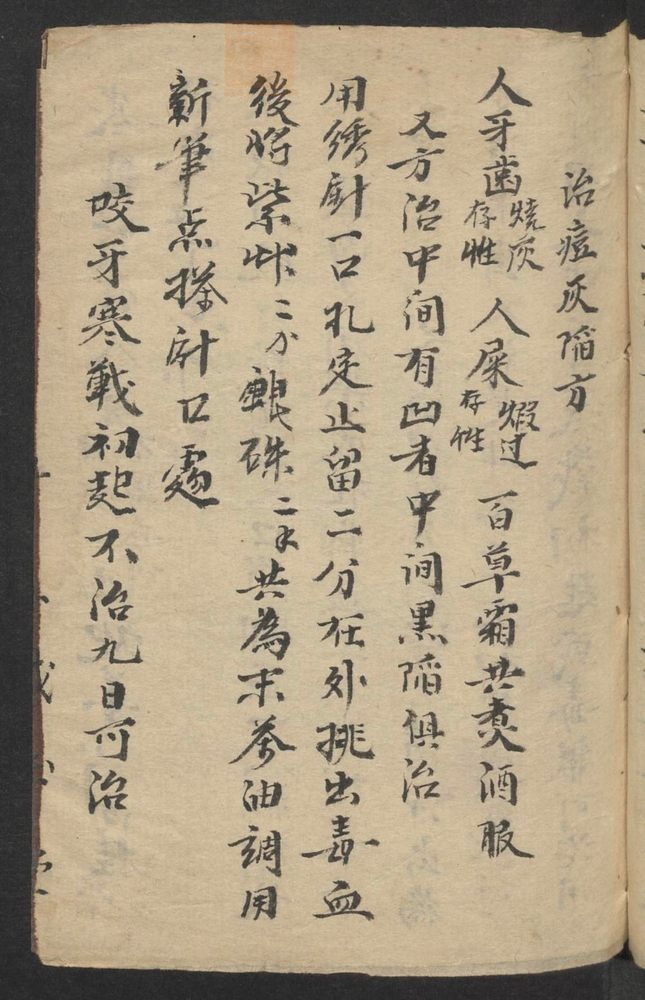 治痘灰陷方
人牙齒燒灰存性 人屎煅过存性 百草霜共煑酒服
又方治中间有凹者中间黑陷俱治
用绣針一口扎定止留二分在外挑出毒血
後将紫艸二分 硃二 共為末茶油調用
新筆点搽針口處
咬牙寒戰初起不治九日可治